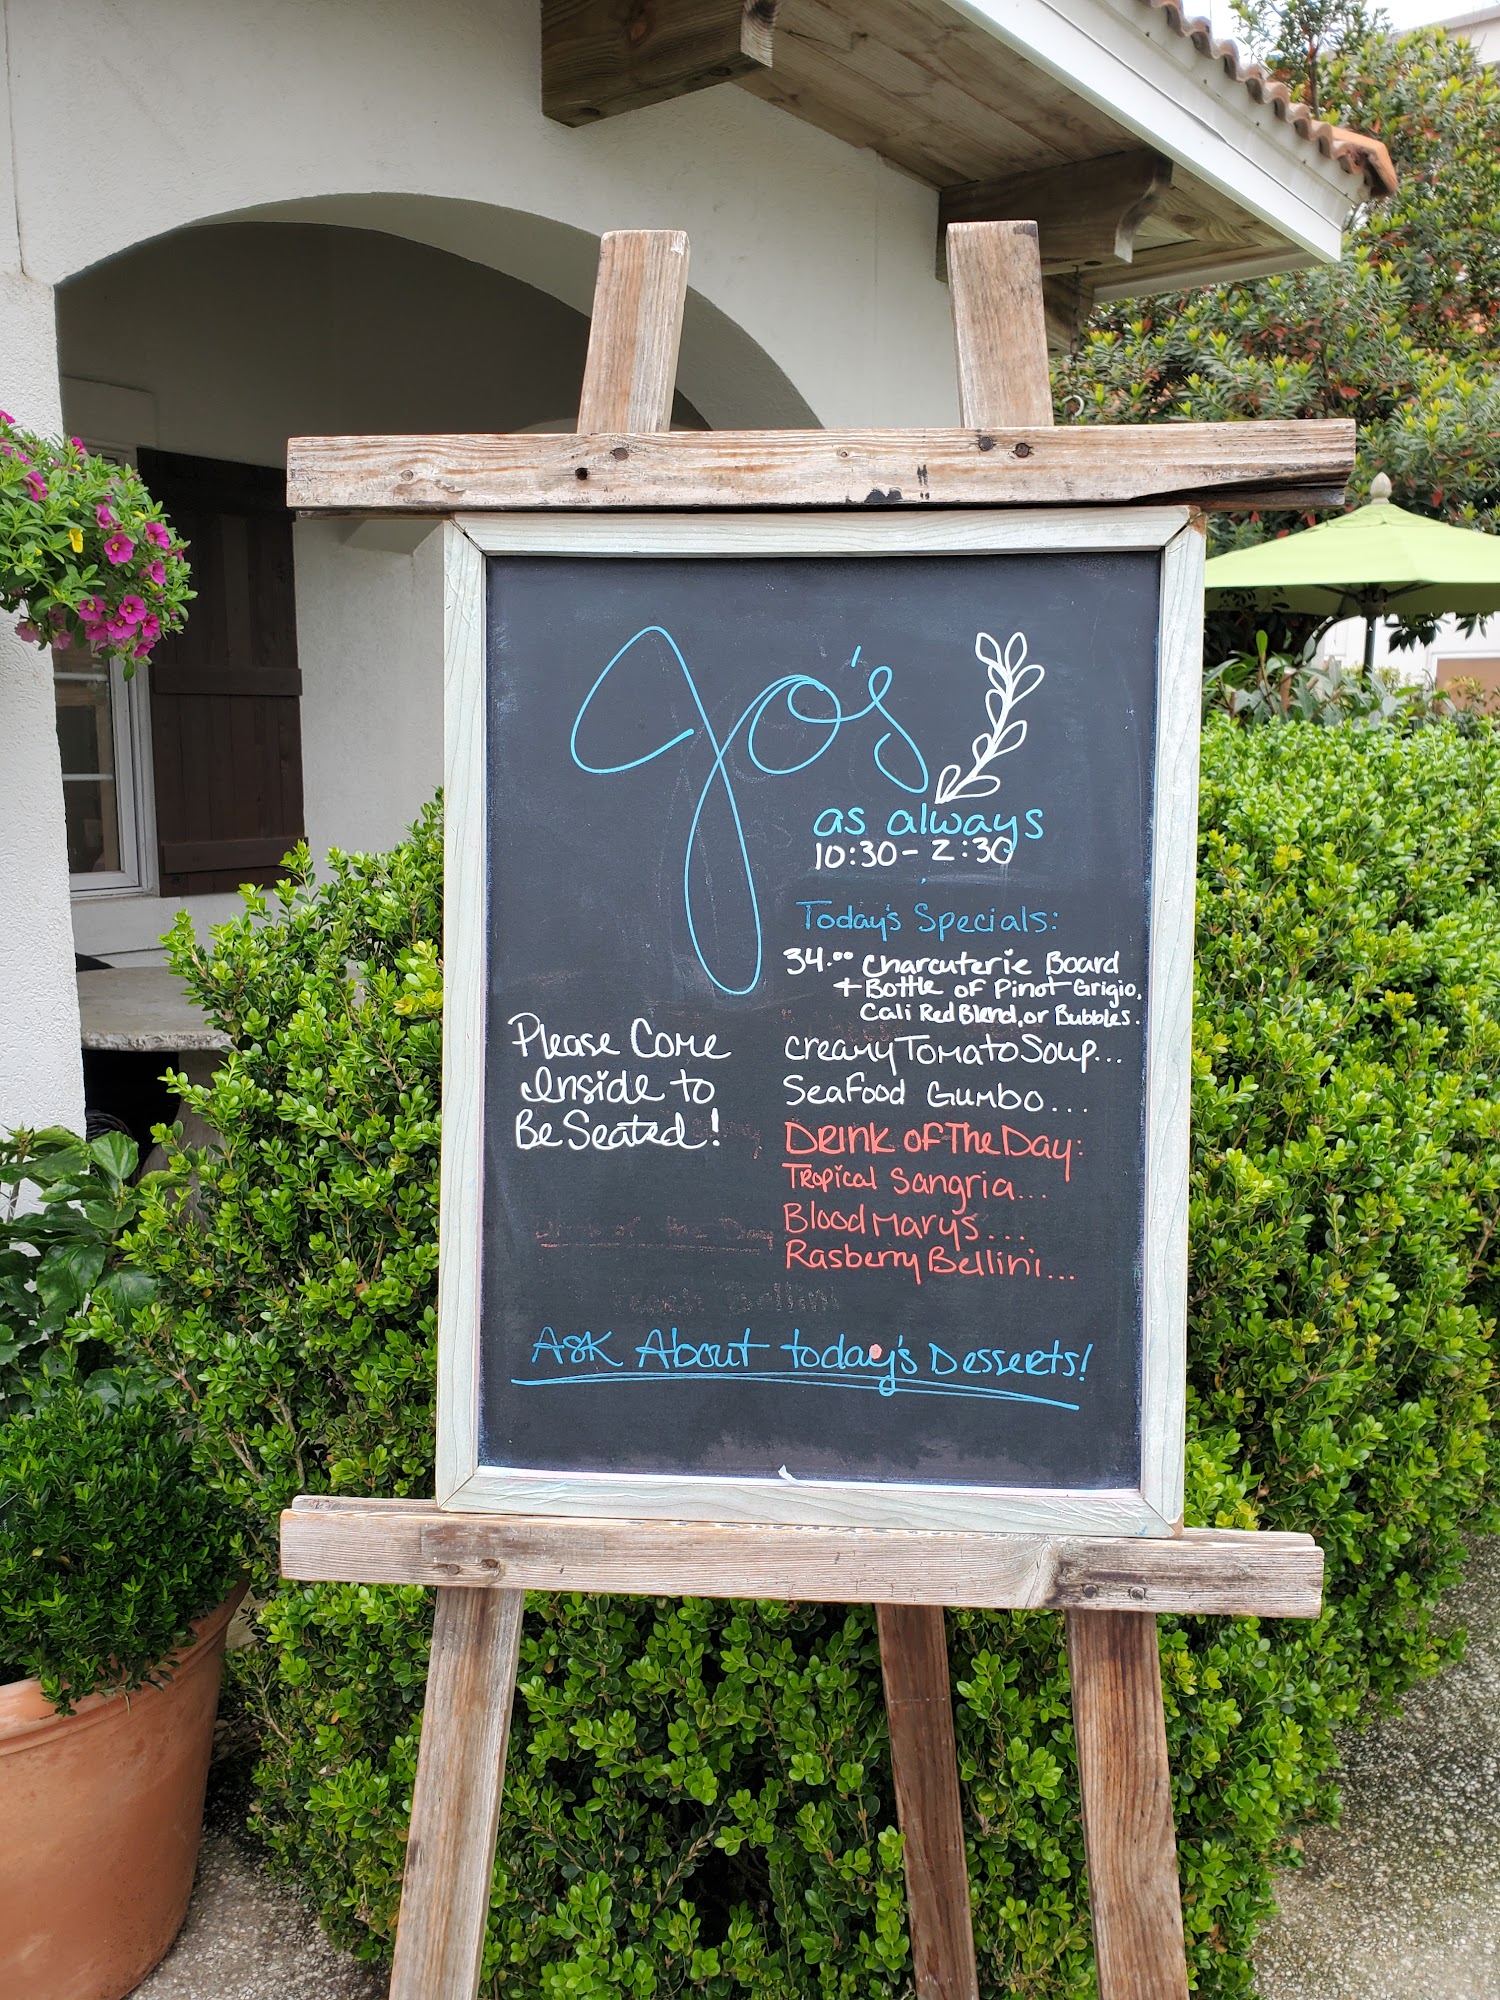 Jo's
as always
10:30 - 2:30
Today's Specials:
34.00 Charcuterie Board
+ Bottle of Pinot Grigio,
Cali Red Blend, or Bubbles.
Creamy Tomato Soup...
Seafood Gumbo...
Please Come
Inside to
Be Seated!
Drink of The Day:
Tropical Sangria...
Blood Marys...
Rasberry Bellini...
Ask About today's Desserts!